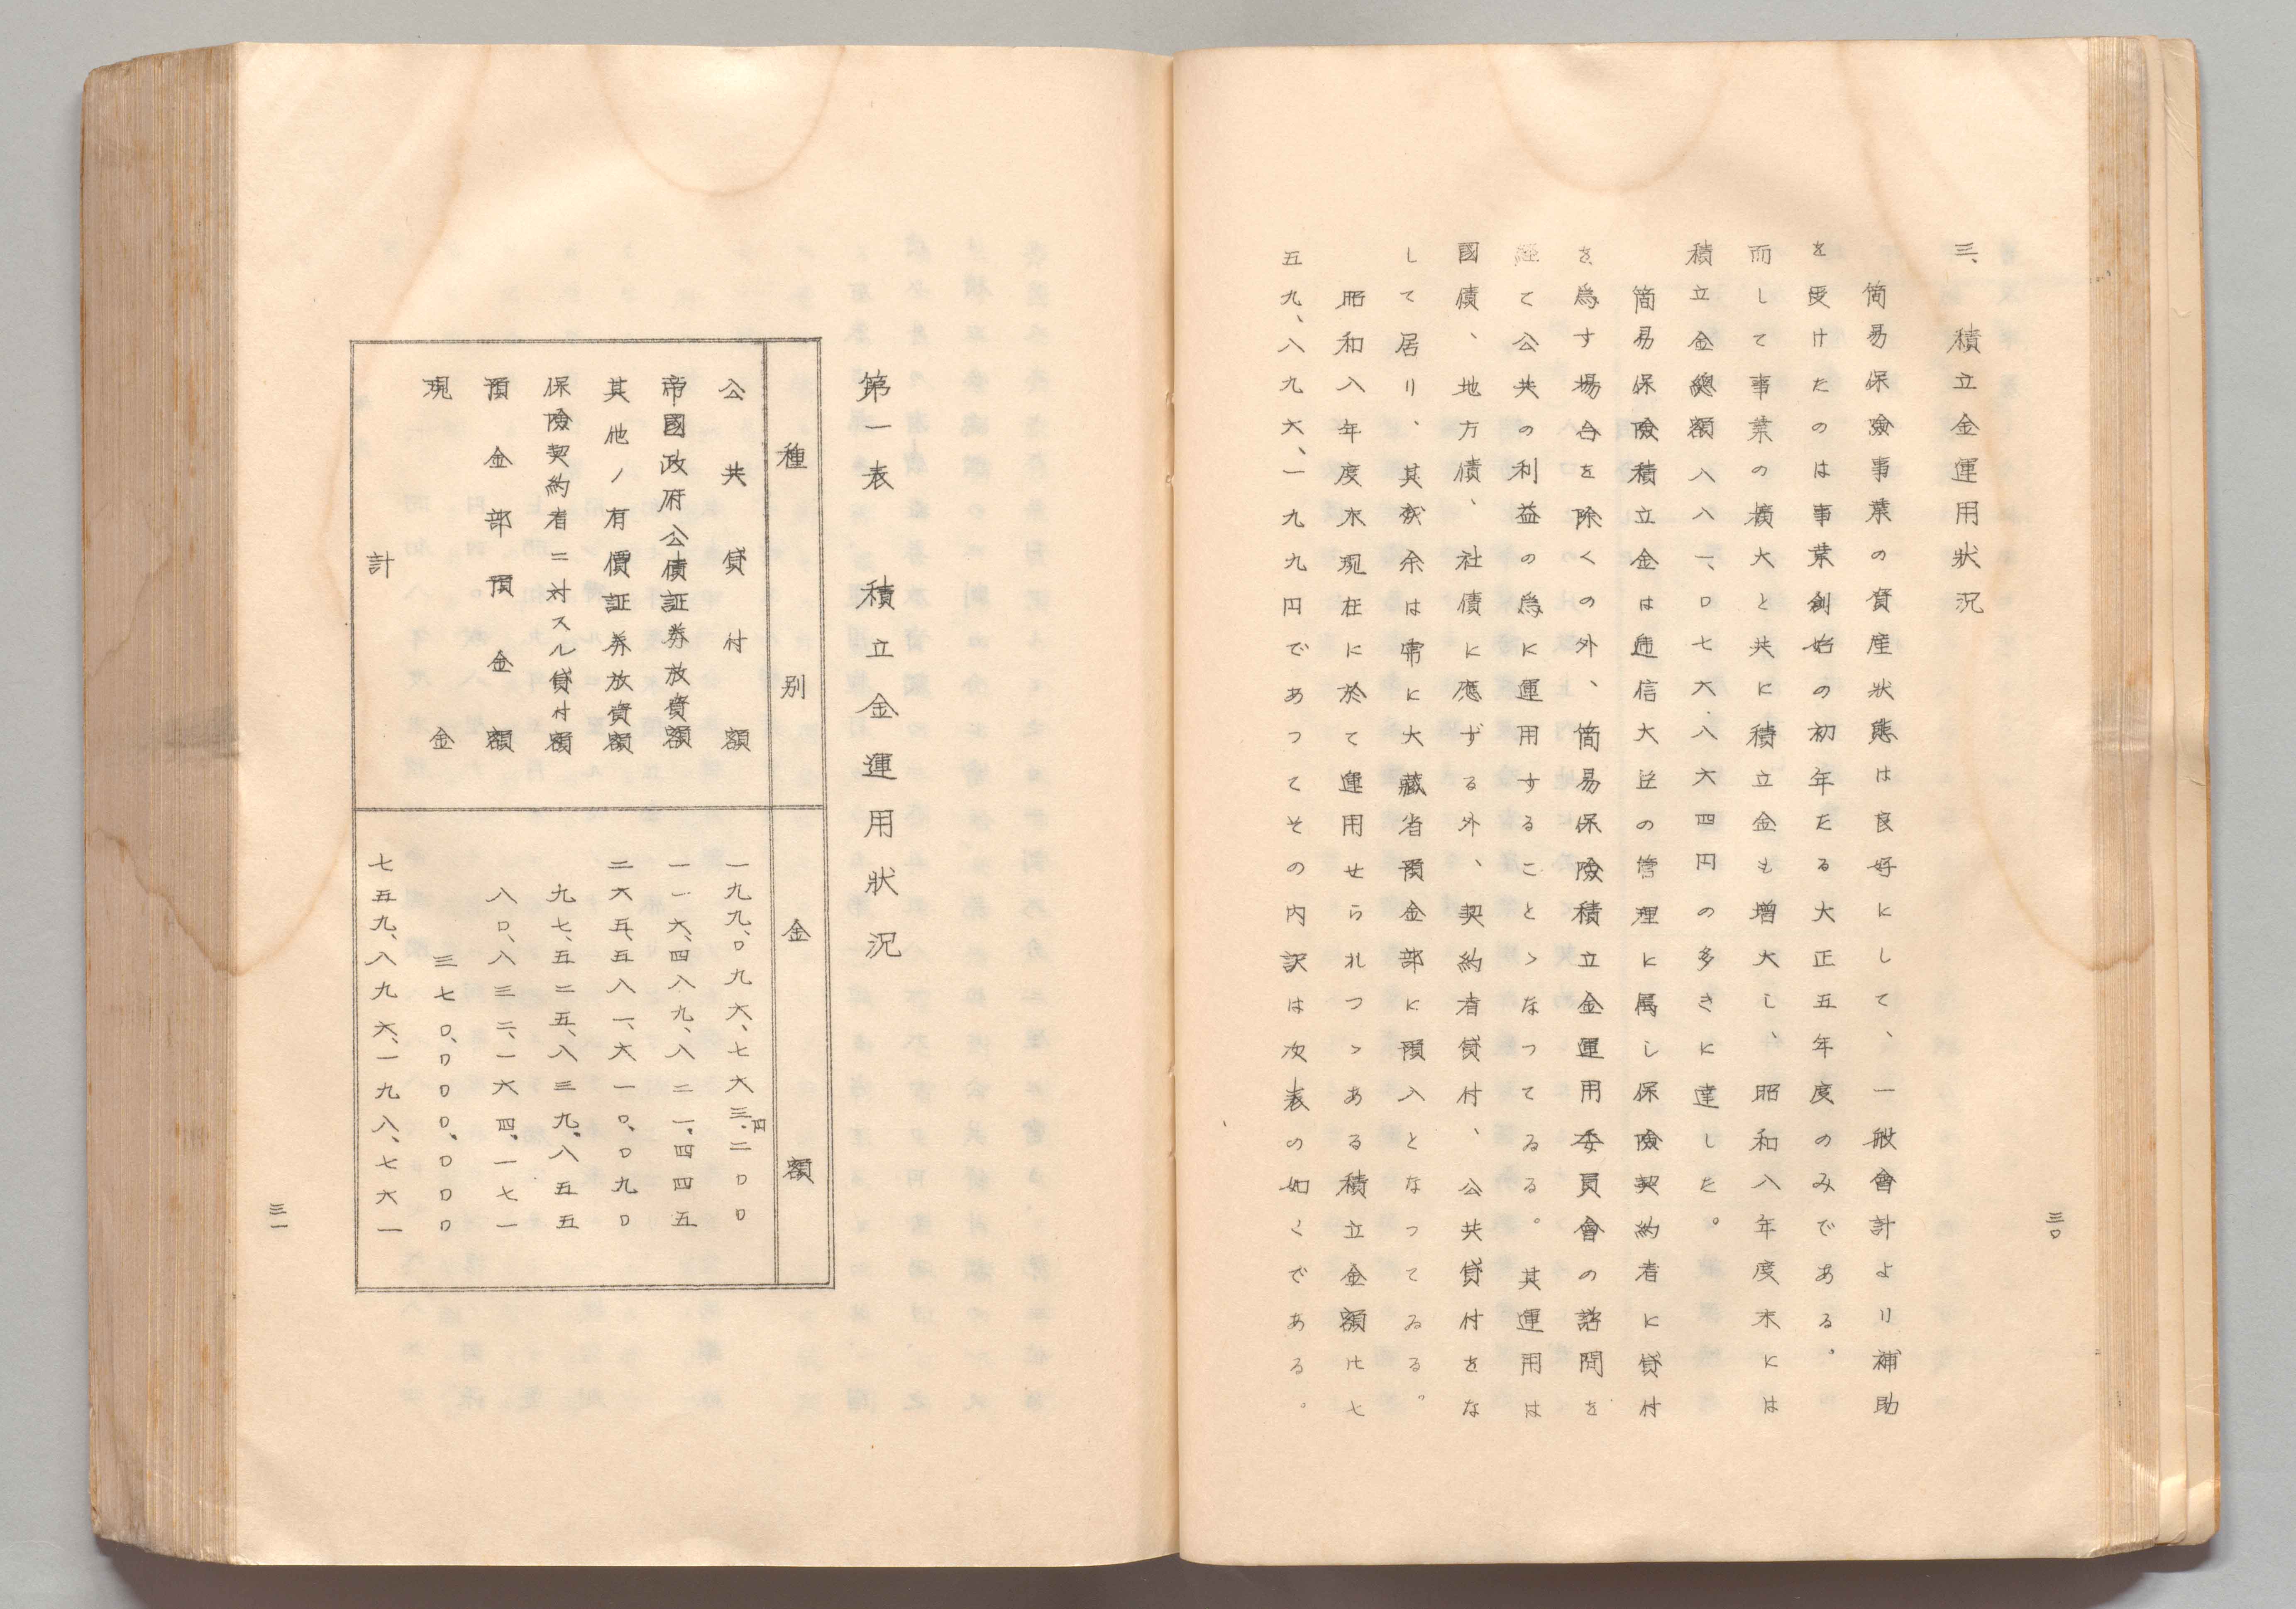 三、積立金運用狀況
簡易保險事業の資産狀態は良好にして、一般會計より補助
を受けたのは事業創始の初年たる大正五年度のみである。
而して事業の擴大と共に積立金も増大し、昭和八年度末には
積立金總額八八一、〇七六、八六四円の多きに達した。
簡易保險積立金は逓信大臣の管理に属し保險契約者に貸付
を為す場合を除くの外、簡易保險積立金運用委員會の諮問を
経て公共の利益の為に運用することゝなつてゐる。其運用は
國債、地方債、社債に應ずる外、契約者貸付、公共貸付をな
して居り、其残余は常に大藏省預金部に預入となつてゐる。
昭和八年度末現在に於て運用せられつゝある積立金額は七
五九、八九六、一九九円であつてその内訳は次表の如くである。
三〇
第一表 積立金運用狀況
種別 金額
公共貸付額 一九九、〇九六、七六三円、二〇〇
帝國政府公債証券放資額 一一六、四八九、八二一、四四五
其他ノ有價証券放資額 二六五、五八一、六一〇、〇九〇
保險契約者ニ対スル貸付額 九七、五二五、八三九、八五五
預金部預金額 八〇、八三二、一六四、一七一
現金 三七〇、〇〇〇、〇〇〇
計 七五九、八九六、一九八、七六一
三一